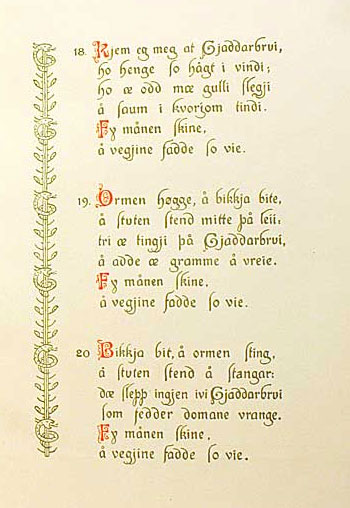 18. Kjem eg meg at Gjaddarbrui,
ho henge so hågt i vindi;
ho æ odd mæ gulli slegji
å saum i kvorjom tindi.
Fy månen skine,
å vegjine fadde so vie.
19. Ormen høgge, å bikkja bite,
å stuten stend mitte på leii:
tri æ tingji på Gjaddarbrui,
å adde æ gramme å vreie.
Fy månen skine,
å vegjine fadde so vie.
20 Bikkja bit, å ormen sting,
å stuten stend å stangar:
dæ slepp ingjen ivi Gjaddarbrui
som fedder domane vrange.
Fy månen skine,
å vegjine fadde so vie.